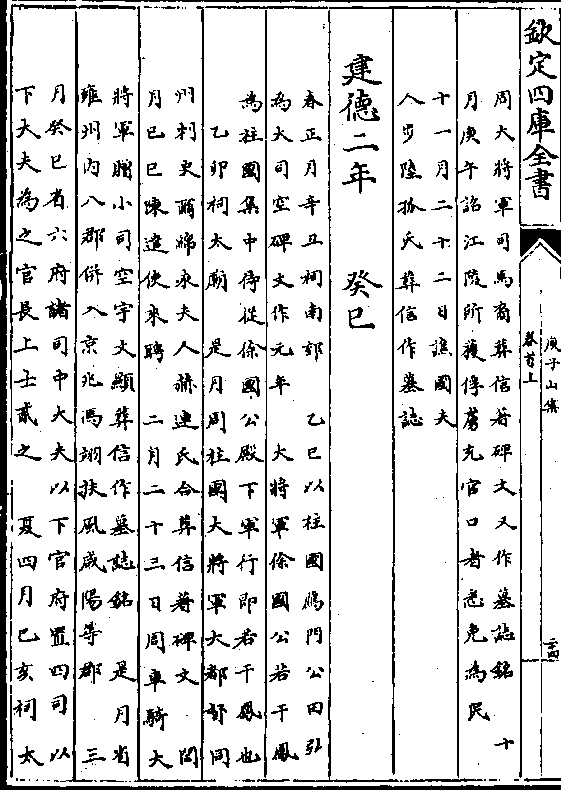 欽定四庫全書
庾子山集
卷首上
二十四
周大將軍司馬裔葬信著碑文又作墓誌銘　十
月庚午詔江陵所獲俘虜充官口者悉免為民
十一月二十二日譙國夫
人步陸孤氏葬信作墓誌
建德二年　癸巳
春正月辛丑祠南郊　乙巳以柱國鴈門公田弘
為大司空碑文作元年　大將軍徐國公若干鳳
為柱國集中侍從徐國公殿下軍行即若干鳳也
乙卯祠太廟　是月周柱國大將軍大都督同
州刺史爾綿永夫人赫連氏合葬信著碑文　閏
月己巳陳遣使來聘　二月二十三日周車騎大
將軍贈小司空宇文顯葬信作墓誌銘　是月省
雍州內八郡併入京兆馮翊扶風咸陽等郡　三
月癸巳省六府諸司中大夫以下官府置四司以
下大夫為之官長上士貳之　夏四月己亥祠太